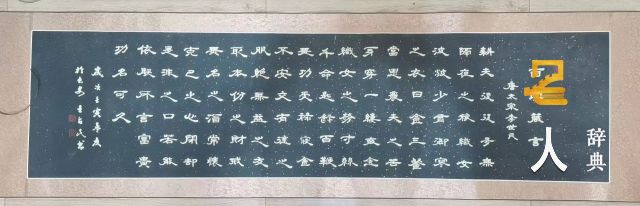 箴言
唐太宗李世民
耕夫役役多無
隔夜之粮織女
波波少有御寒
之衣日食三餐
當思農夫之苦
身穿一縷每念
織女之勞寸絲
千命匙飯百鞭
無功受禄寢食
不安交有德之
朋絕無益之友
取本份之財戒
無名之酒常懷
克己之心閉却
是非之口若能
依朕所言富貴
功名可久
歲次壬寅年夏
人
辞典